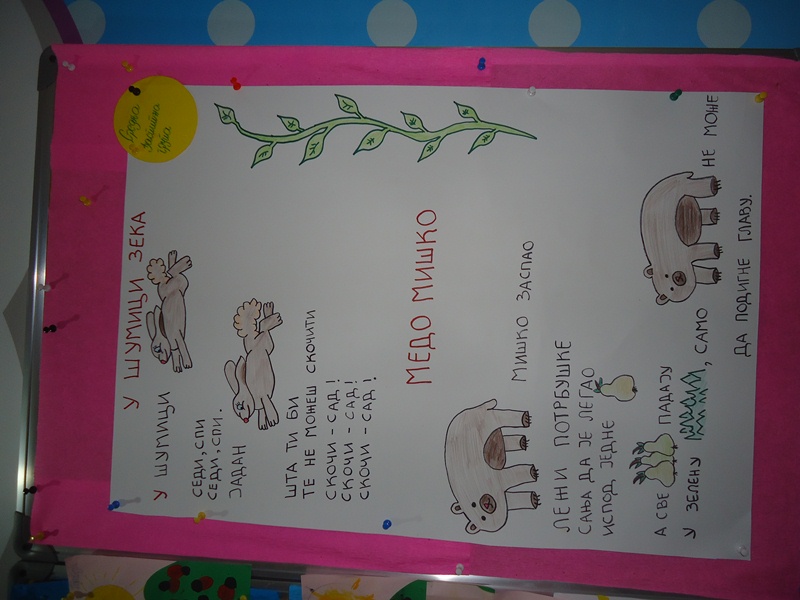 Средња
васпитна
група
У ШУМИЦИ ЗЕКА
У ШУМИЦИ
СЕДИ, СПИ
СЕДИ, СПИ.
ЈАДАН
ШТА ТИ БИ
ТЕ НЕ МОЖЕШ СКОЧИТИ
СКОЧИ - САД!
СКОЧИ - САД!
СКОЧИ - САД!
МЕДО МИШКО
МИШКО ЗАСПАО
ЛЕЖИ ПОТРБУШКЕ
САЊА ДА ЈЕ ЛЕГАО
ИСПОД ЈЕДНЕ
А СВЕ ПАДАЈУ
У ЗЕЛЕНУ , САМО НЕ МОЖЕ
ДА ПОДИГНЕ ГЛАВУ.